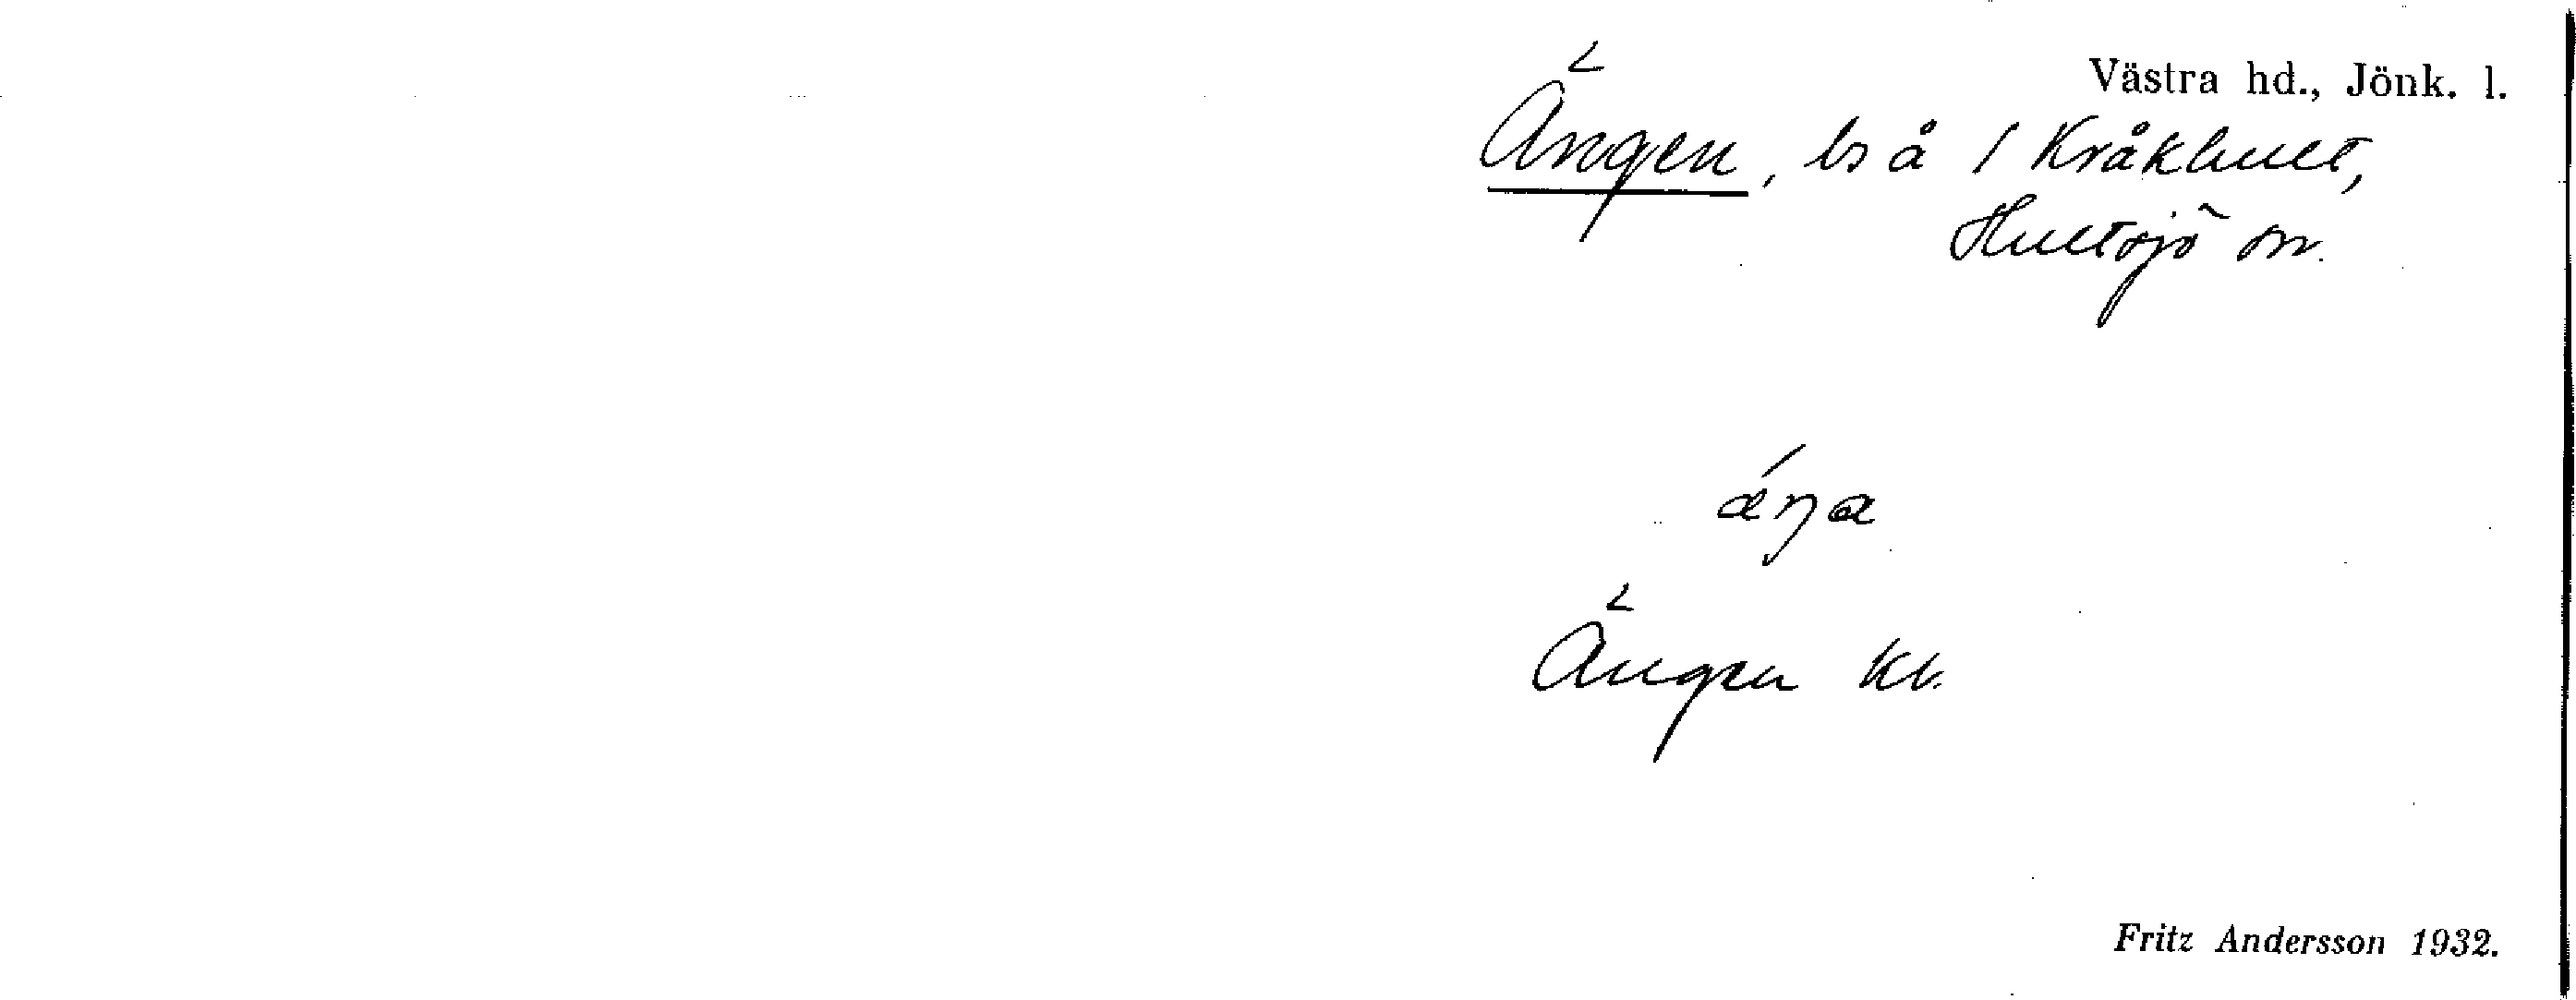 Västra hd., Jönk. l.
Ängen, bs å / Kråkhult,
Hultsjö sn.
ǽŋa
Ängen kb.
Fritz Andersson 1932.